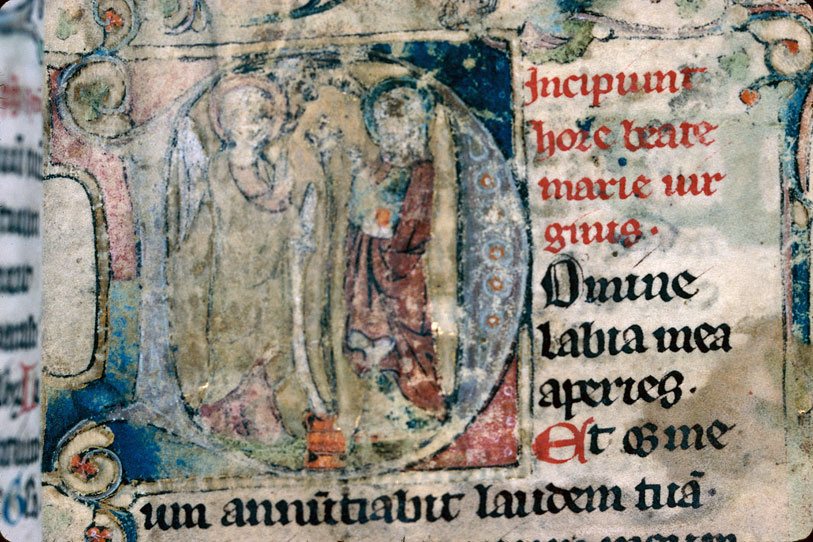 Incipiunt
hore beate
marie uir
ginis.
Domine
labia mea
aperies.
Et os me
um annūtiabit laudem tuā.